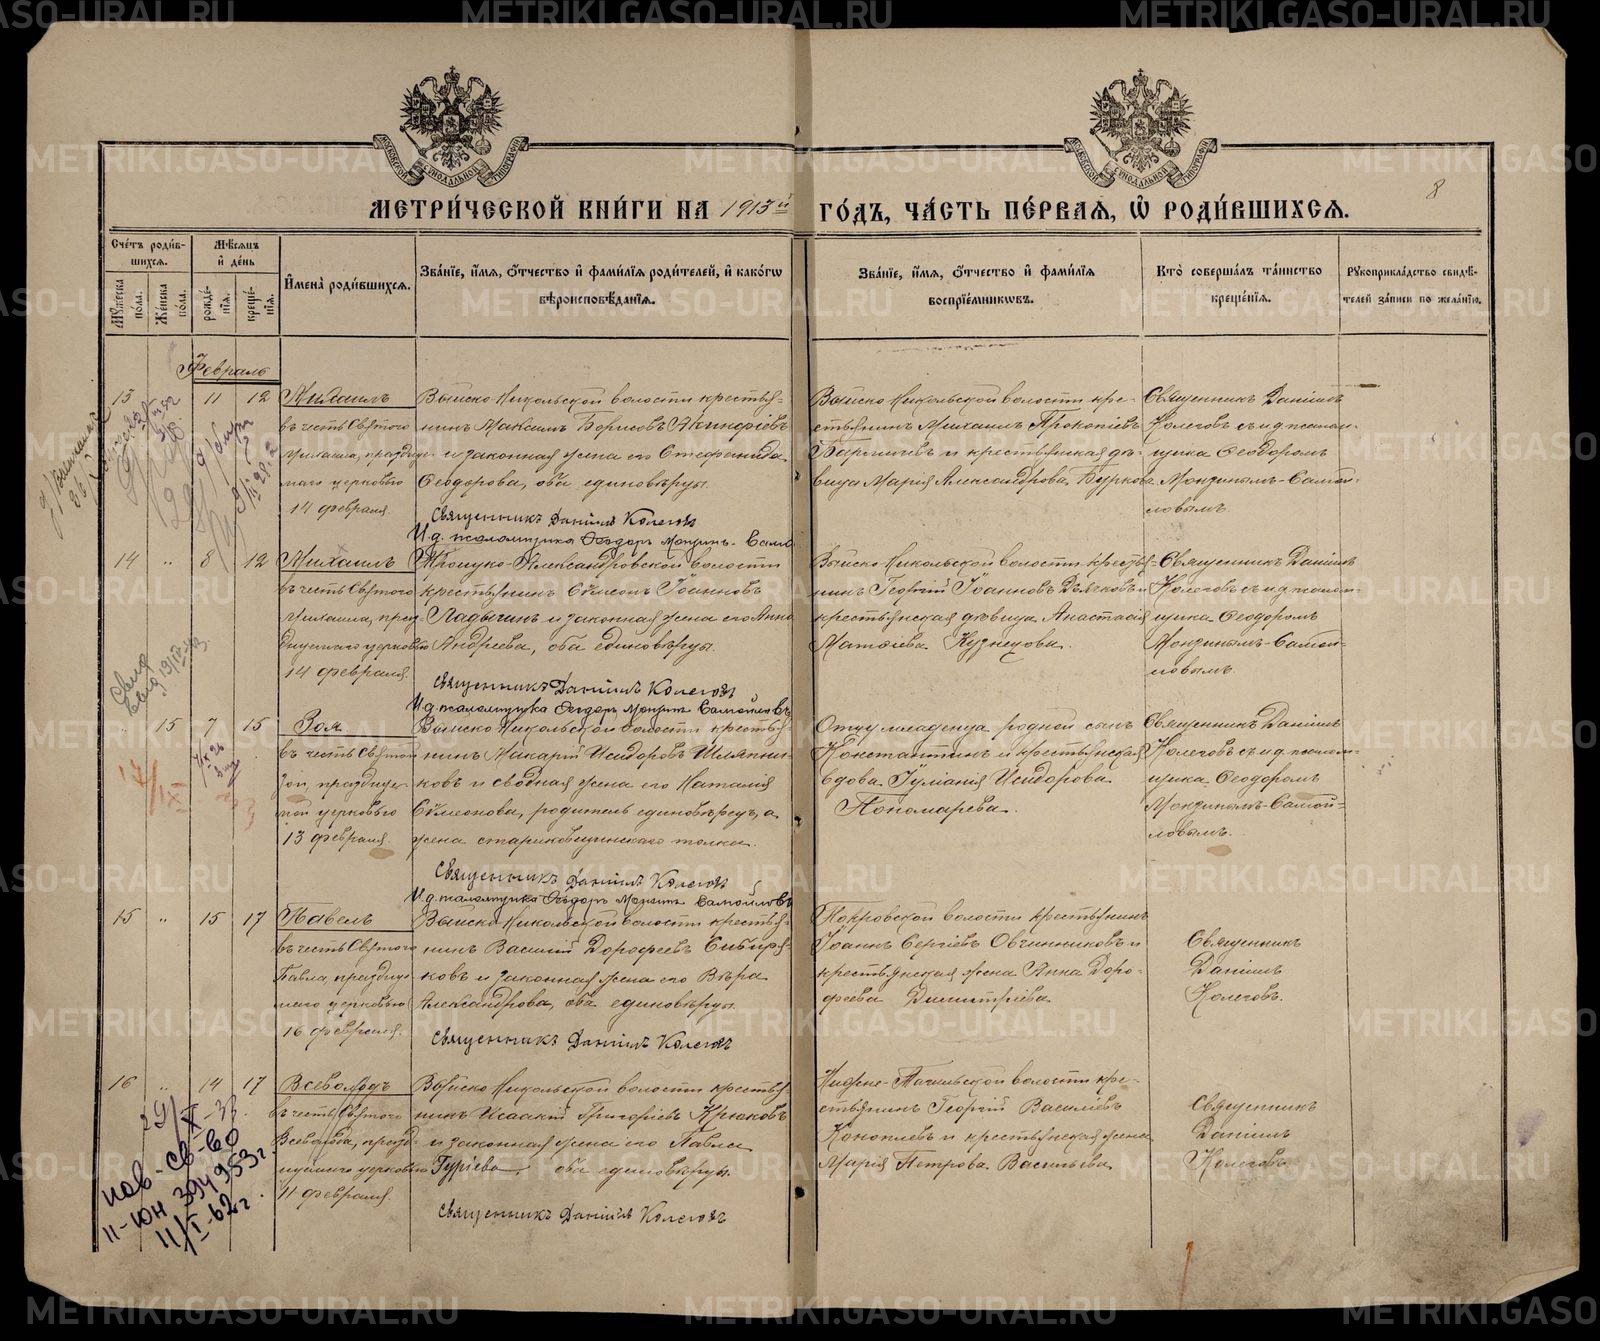 МЕТРИ́ЧЕСКОЙ КНИ́ГИ НА 1913й ГО́ДЪ, ЧА́СТЬ ПЕ́РВАЯ, Ѡ РОДИ́ВШИХСЯ.
8
Сче́тъ роди́в-
шихся.
Мꙋ́жеска
по́ла.
Же́нска
по́ла.
Мѣ́сяцъ
и де́нь
рожде́-
нїя.
креще́-
нїя.
И҆мена̀ роди́вшихся.
Зва́нїе, и҆́мя, ѻ҆́тчество и҆ фами́лїя роди́телей, и҆ како́гѡ
вѣроисповѣ́данїя.
Зва́нїе, и҆́мя, ѻ҆́тчество и҆ фами́лїя
воспрїе́мниковъ.
Кто̀ соверша́лъ та́инство
креще́нїя.
Рꙋкоприкла́дство свидѣ́-
телей за́писи по жела́нїю.
Февраль
13
11
12
Михаилъ
въ честь Святого
Михаила, праздну-
маго церковью
14 февраля.
Выйско-Никольской волости крестья-
нинъ Максимъ Борисовъ Акинфіевъ
и законная жена его Стефанида
Ѳеодорова, оба единовѣрцы.
Священникъ Даніилъ Колеговъ
И.д. псаломщика Ѳеодоръ Мондинъ-Само
Выйско-Никольской волости кре-
стьянинъ Михаилъ Прокопіевъ
и крестьянская дѣ-
вица Марія Александрова Буркова.
Священникъ Даніилъ
Колеговъ съ и.д. псалом-
щика Ѳеодоромъ
Мондинымъ-Самой-
ловымъ.
14
"
8
12
Михаилъ
въ честь Святого
Михаила, празд-
днуемаго церковью
14 февраля.
Троицко-Александровской волости
крестьянинъ Сѵмеонъ Іоанновъ
Ладыгинъ и законная жена его Анна
Андреева, оба единовѣрцы.
Священникъ Даніилъ Колеговъ
И.д. псаломщика Ѳеодоръ Мондинъ Самойловъ
Выйско-Никольской волости крестья-
нинъ Георгій Іоанновъ Дьячковъ и
крестьянская дѣвица Анастасія
Матѳіева Кузнецова.
Священникъ Даніилъ
Колеговъ съ и.д. псалом-
щика Ѳеодоромъ
Мондинымъ-Самой-
ловымъ.
15
7
15
Зоя
въ честь Святой
Зои, праздну-
мой церковью
13 февраля.
Выйско-Никольской волости крестья-
нинъ Макарій Исидоровъ Шляпни-
ковъ и сводная жена его Наталія
Сѵмеонова, родитель единовѣрецъ, а
жена стариковщинскаго толка.
Священникъ Даніилъ Колеговъ
И.д. псаломщика Ѳеодоръ Мондинъ Самойловъ
Отцу младенца родной сынъ
Константинъ и крестьянская
вдова Іуліанія Исидорова
Пономарева.
Священникъ Даніилъ
Колеговъ съ и.д. псалом-
щика Ѳеодоромъ
Мондинымъ-Самой-
ловымъ.
15
"
15
17
Павелъ
въ честь Святого
Павла, праздну-
маго церковью
16 февраля.
Выйско-Никольской волости крестья-
нинъ Василій Дороѳеевъ Сибиря-
ковъ и законная жена его Вѣра
Александрова, оба единовѣрцы.
Священникъ Даніилъ Колеговъ
Покровской волости крестьянинъ
Іоаннъ Сергіевъ Овчинниковъ и
крестьянская жена Анна Доро-
феева Димитріева.
Священникъ
Даніилъ
Колеговъ.
16
"
14
17
Всеволодъ
въ честь Святого
Всеволода, празд-
нуемаго церковью
11 февраля.
Выйско-Никольской волости крестья-
нинъ Исаакій Григоріевъ Крюковъ
и законная жена его Павла
Гуріева, оба единовѣрцы.
Священникъ Даніилъ Колеговъ
Нижне-Тагильской волости кре-
стьянинъ Георгій Василіевъ
Коноплевъ и крестьянская жена
Марія Петрова Васильева.
Священникъ
Даніилъ
Колеговъ.
29/X-33.
пов-св-во
II-ЮН 394953г.
11/I-62г.
METRIKI.GASO-URAL.RU